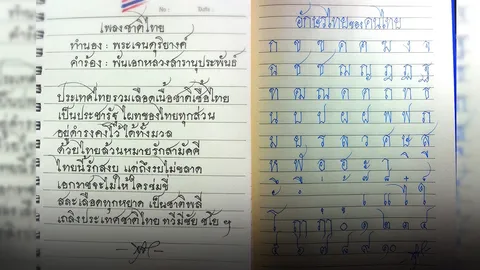 เพลงชาติไทย
ทำนอง : พระเจนดุริยางค์
คำร้อง : พันเอกหลวงสารานุประพันธ์
ประเทศไทยรวมเลือดเนื้อชาติเชื้อไทย
เป็นประชารัฐ ไผทของไทยทุกส่วน
อยู่ดำรงคงไว้ ได้ทั้งมวล
ด้วยไทยล้วนหมายรักสามัคคี
ไทยนี้รักสงบ แต่ถึงรบไม่ขลาด
เอกราชจะไม่ให้ใครข่มขี่
สละเลือดทุกหยาด เป็นชาติพลี
เถลิงประเทศชาติไทย ทวีมีชัย ชโย ฯ
อักษรไทยของคนไทย
ก ข ฃ ค ฅ ฆ ง จ
ฉ ช ซ ฌ ญ ฎ ฏ ฐ
ฑ ฒ ณ ด ต ถ ท ธ
น บ ป ผ ฝ พ ฟ ภ
ม ย ร ล ว ศ ษ ส
ห ฬ อ ฮ ะ า
เ แ ไ
โ ๑ ๒ ๓ ๔
๕ ๖ ๗ ๘ ๙ ๑๐